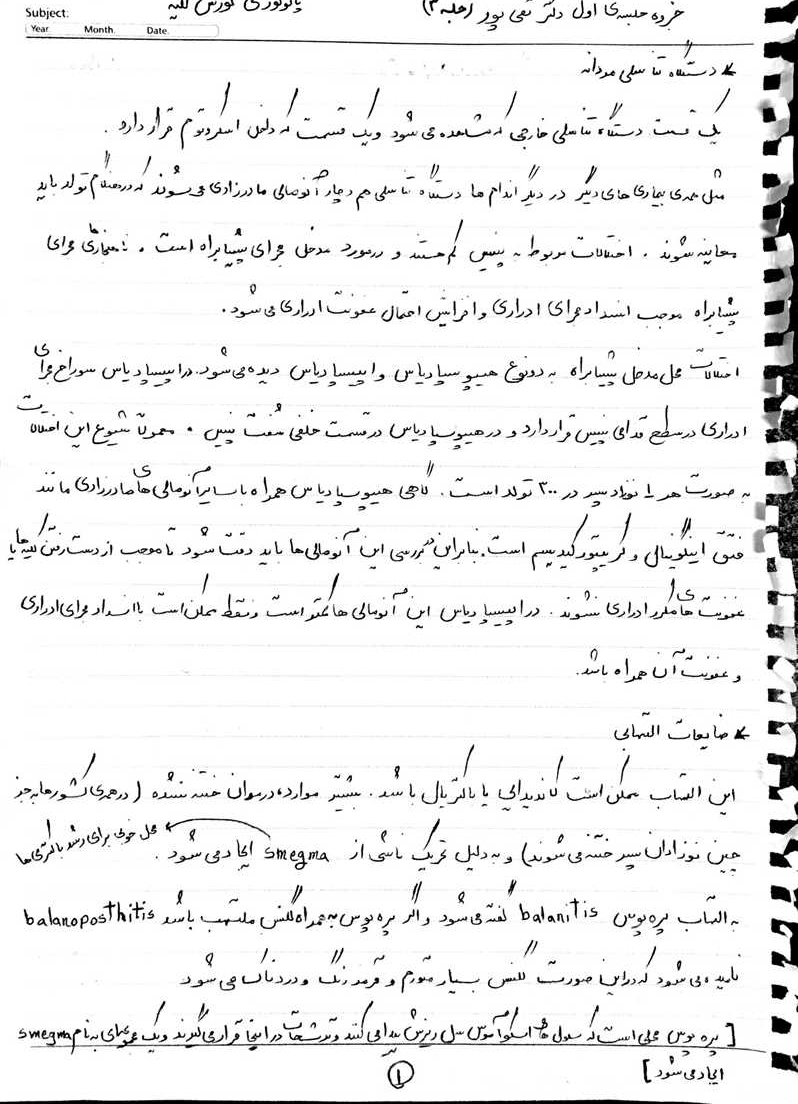 جزوه جلسه‌ی اول دکتر تقی پور (جلسه ۳) پاتولوژی کورس کلیه
Subject:
Year. Month. Date.
دستگاه تناسلی مردانه
یک قسمت دستگاه تناسلی خارجی که مشاهده می شود ویک قسمت که داخل اسکروتوم قرار دارد .
مثل همه‌ی بیماری های دیگر در دیگر اندام ها دستگاه تناسلی هم دچار آنومالی مادرزادی می شوند که در هنگام تولد باید
معاینه شوند . اختلالات مربوط به پنیس کم هستند و در مورد مدخل مجرای پیشابراه است . ناهنجاری مجرای
پیشابراه موجب انسداد مجرای ادراری و افزایش احتمال عفونت ادراری می شود .
اختلالات محل مدخل پیشابراه به دونوع هیپوسپادیاس و اپیسپادیاس دیده می شود. در اپیسپادیاس سوراخ مجرای
ادراری در سطح قدامی پنیس قرار دارد و در هیپوسپادیاس در قسمت خلفی شفت پنیس . معمولاً شیوع این اختلالات
به صورت هر ۱ نوزاد پسر در ۳۰۰ تولد است . گاهی هیپوسپادیاس همراه با سایر آنومالی های مادرزادی مانند
فتق اینگوینالی و کریپتورکیدیسم است . بنابراین در بررسی این آنومالی ها باید دقت شود تا موجب از دست رفتن کلیه ها یا
عفونت های مکرر ادراری نشوند . در اپیسپادیاس این آنومالی ها کمتر است و فقط ممکن است با انسداد مجرای ادراری
و عفونت آن همراه باشد.
ضایعات التهابی
این التهاب ممکن است کاندیدایی یا باکتریال باشد . بیشتر موارد، در مردان ختنه نشده ( در همه‌ی کشورها به جز
چین نوزادان پسر ختنه می شوند) و به دلیل تحریک ناشی از smegma ایجاد می شود . محل خوبی برای رشد باکتری ها
به التهاب پره پوس balanitis گفته می شود و اگر پره پوس به همراه گلنس ملتهب باشد balanoposthitis
نامیده می شود که در این صورت گلنس بسیار متورم و قرمز رنگ و دردناک می شود
[ پره پوس محلی است که سلول های اسکوآموس سل ریزش پیدا می کنند و ترشحات در اینجا قرار می گیرند و یک به نام smegma
ایجاد می شود ]
۱